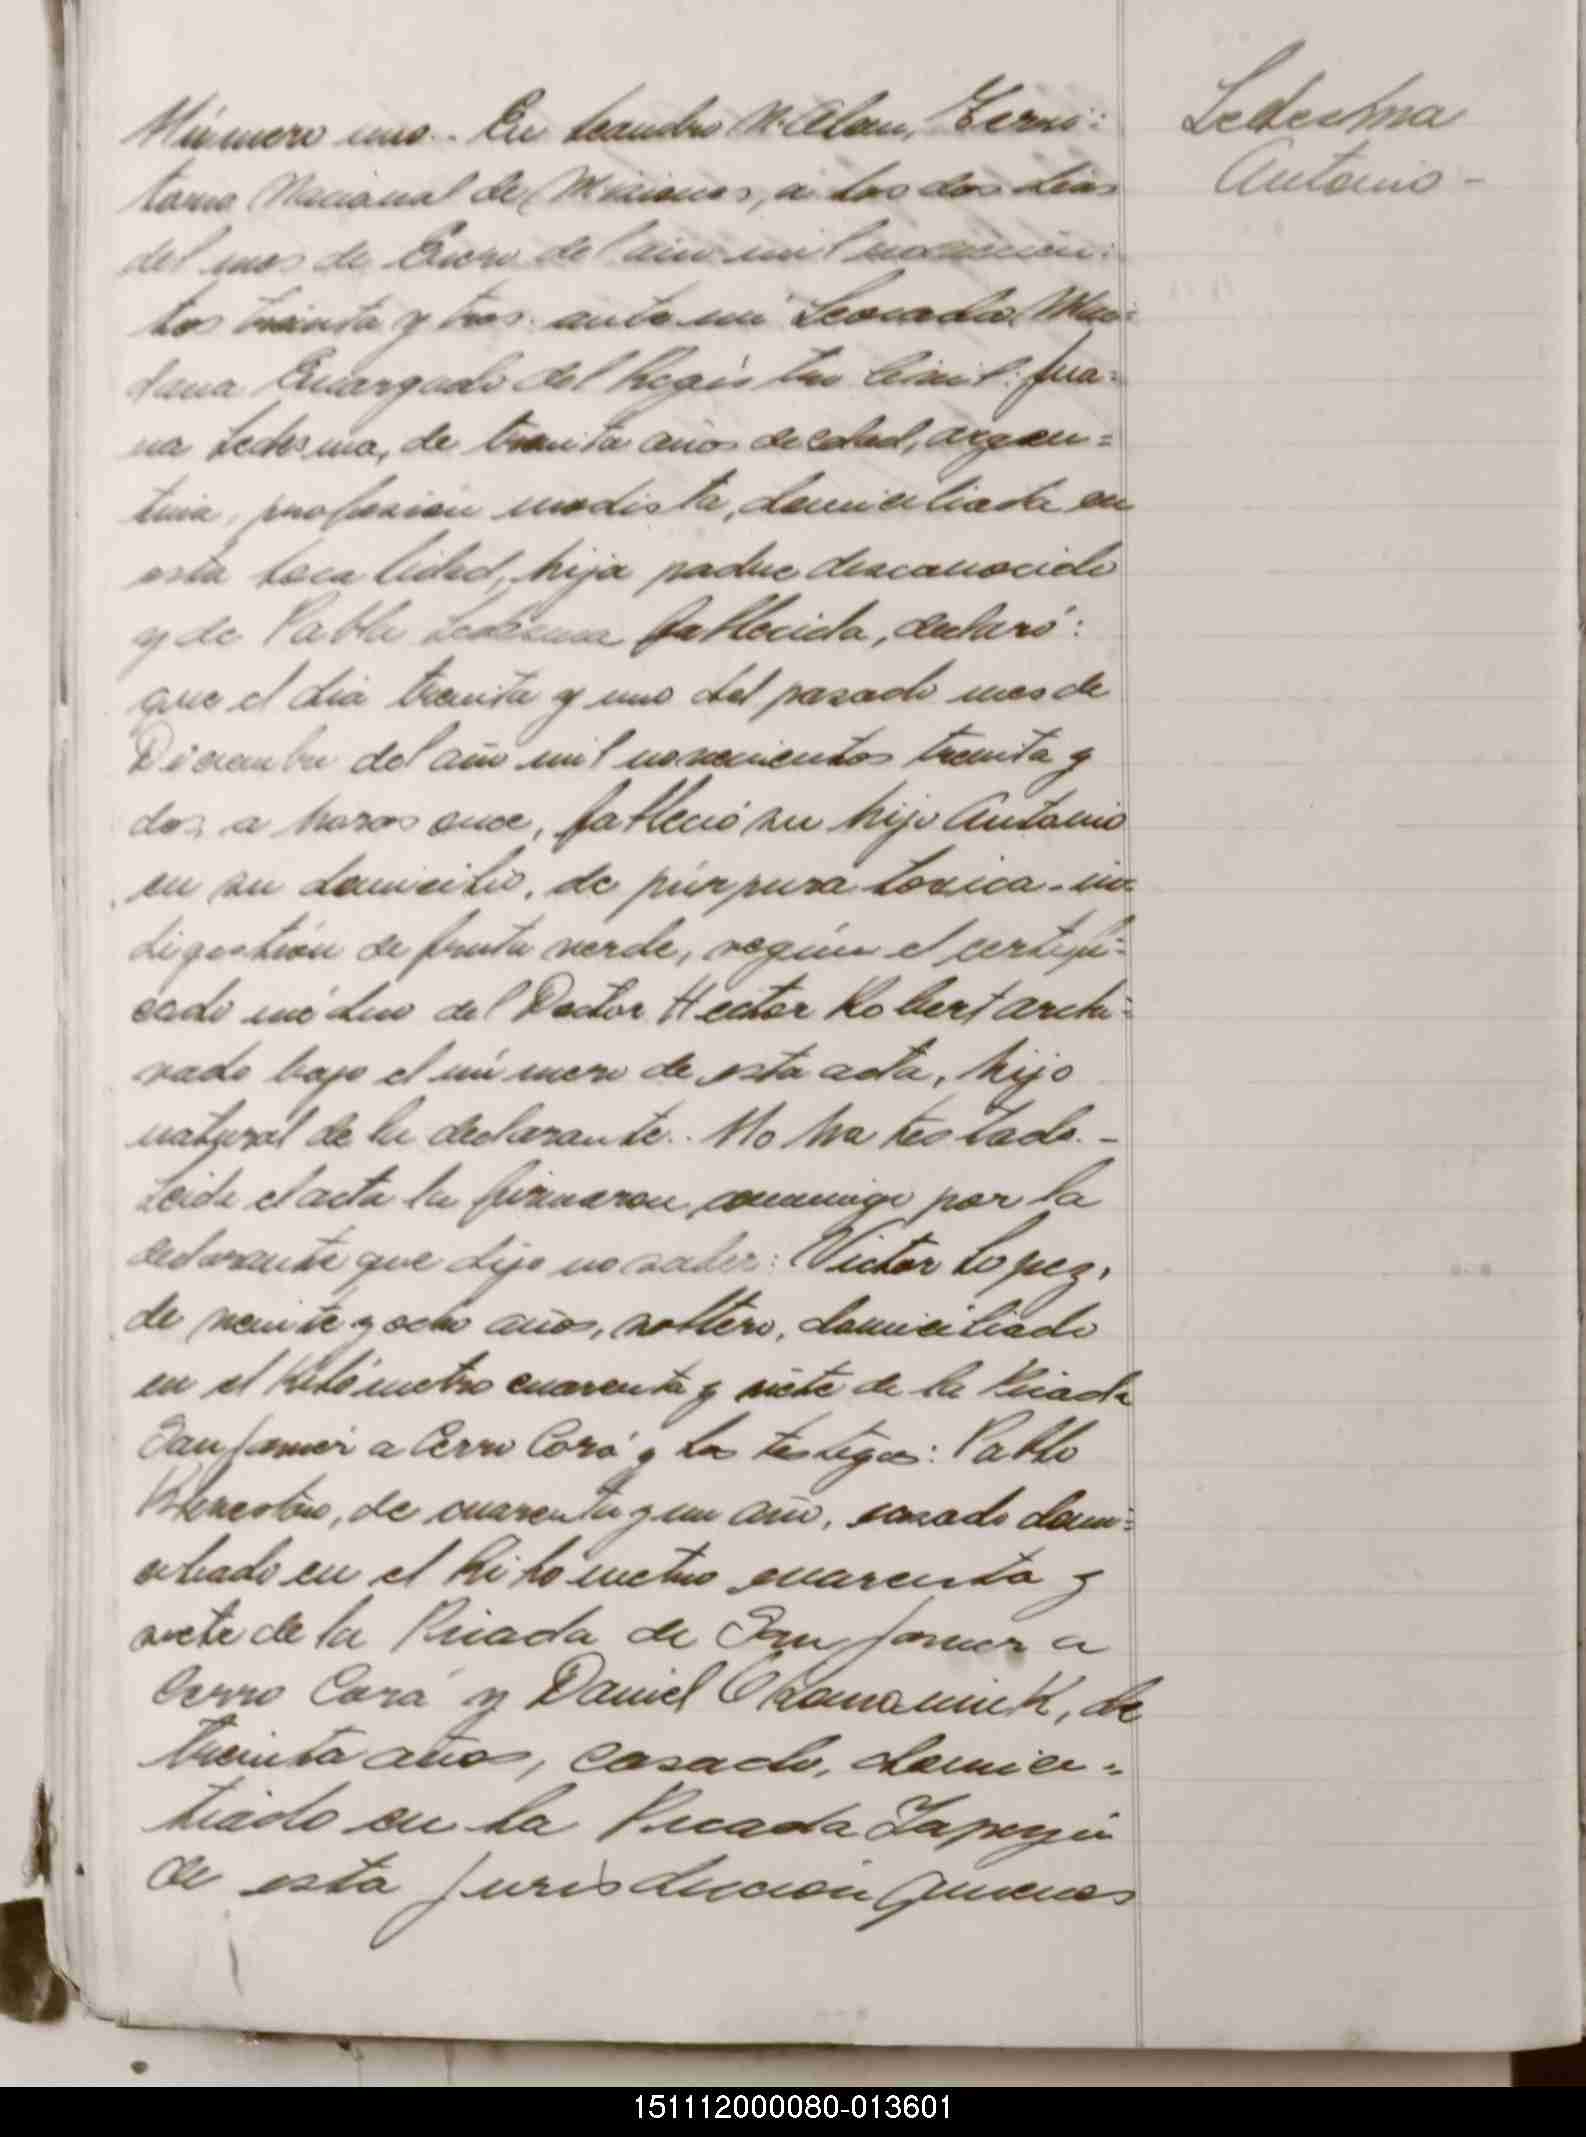 Número uno.. En Leandro N. Alem, Terri:
torio Nacional de Misiones, a los dos dias
del mes de Enero del año mil novecien:
tos treinta y tres. ante mi Leocada Man:
dana Encargado del Registro Civil: Jua:
na Ledesma, de treinta años de edad, argen=
tina, profesion modista, domiciliada en
esta localidad, hija padre desconocido
y de Pabla Ledesma fallecida, declaró:
que el dia treinta y uno del pasado mes de
Diciembre del año mil novecientos treinta y
dos, a horas once, falleció su hijo Antonio
en su domicilio, de púrpura toxica - in=
digestión de fruta verde, según el certifi=
cado médico del Doctor Hector Robert archi=
vado bajo el número de esta acta, hijo
natural de la declarante.. No ha testado. -
Leida el acta la firmaron conmigo por la
declarante que dijo no saber: Victor Lopez,
de veinte y ocho años, soltero, domiciliado
en el Kilómetro cuarenta y siete de la Picada
San Javier a Cerro Corá y los testigos: Pablo
de cuarenta y un año, casado domi=
ciliado en el kilometro cuarenta y
siete de la Picada de San Javier a
Cerro Corá y Daniel de
treinta años, casado, domici=
liado en la Picada Yapeyú
de esta jurisdiccion quienes
Ledesma
Antonio -
151112000080-013601